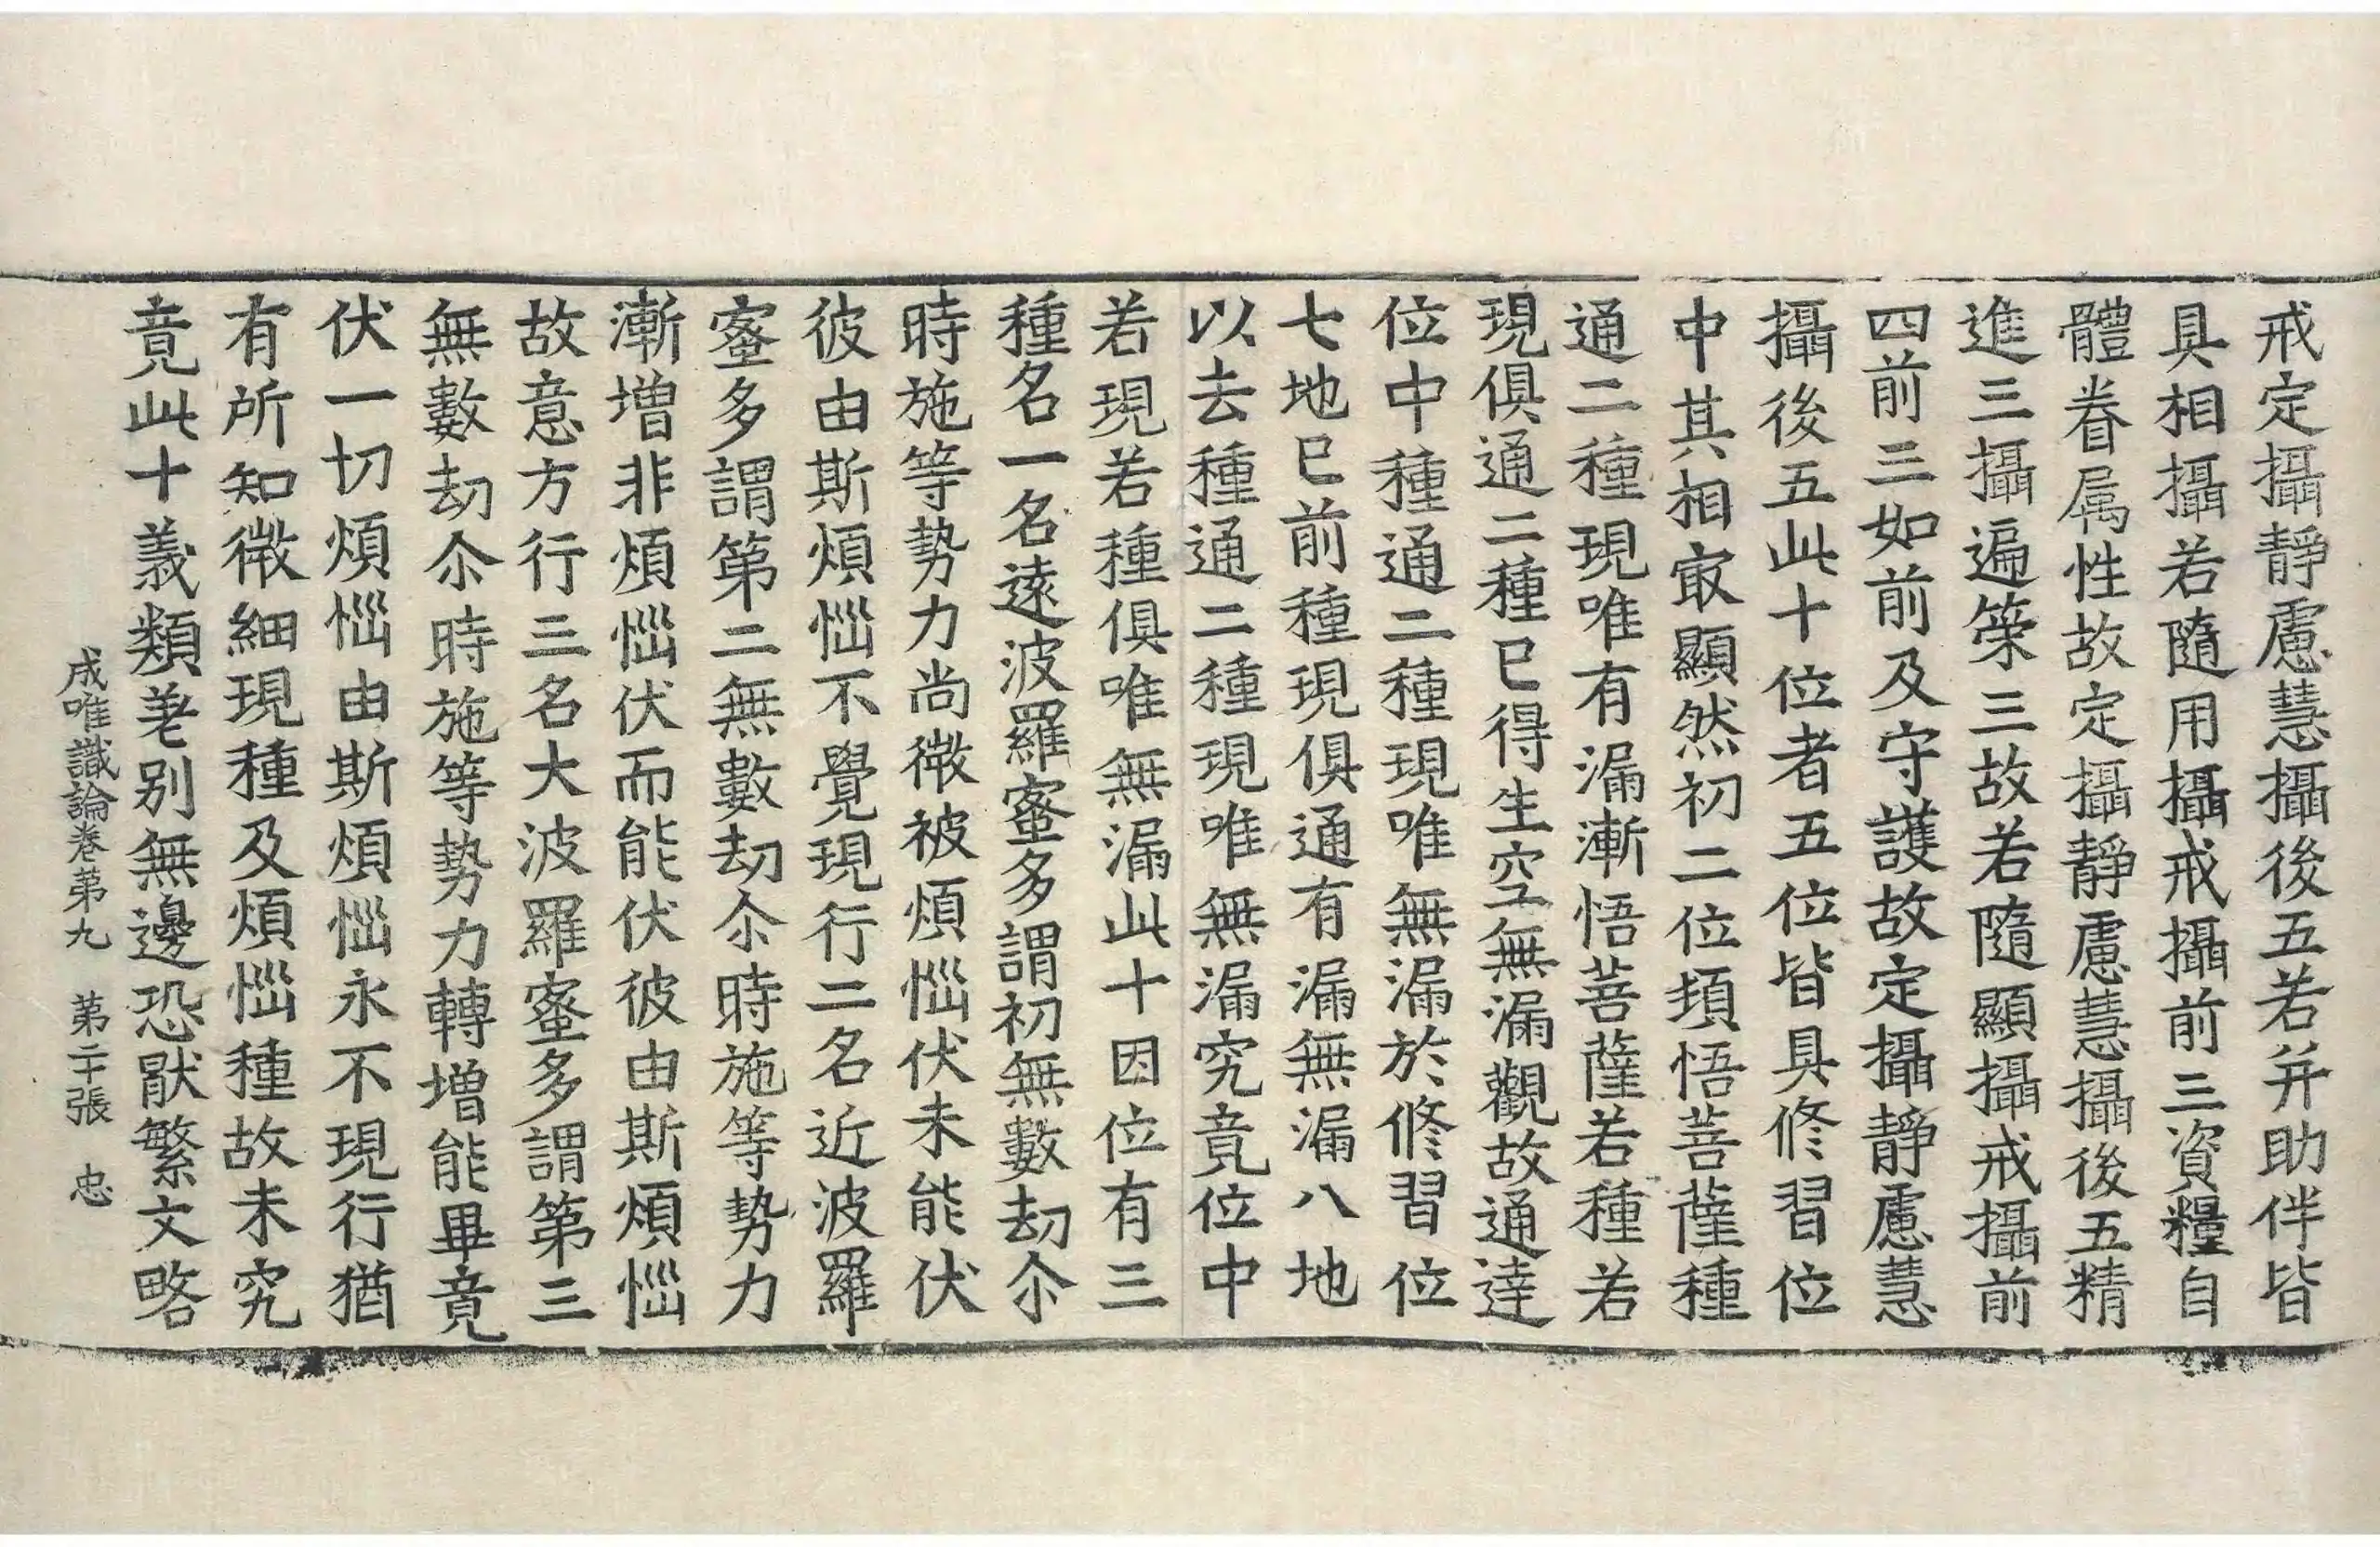 戒定攝靜慮慧攝後五若并助伴皆
具相攝若隨用攝戒攝前三資糧自
體眷属性故定攝靜慮慧攝後五精
進三攝遍策三故若隨顯攝戒攝前
四前三如前及守護故定攝靜慮慧
攝後五此十位者五位皆具修習位
中其相㝡顯然初二位頓悟菩薩種
通二種現唯有漏漸悟菩薩若種若
現俱通二種已得生空無漏觀故通達
位中種通二種現唯無漏於修習位
七地已前種現俱通有漏無漏八地
以去種通二種現唯無漏究竟位中
若現若種俱唯無漏此十因位有三
種名一名遠波羅蜜多謂初無數劫尒
時施等勢力尚微被煩惱伏未能伏
彼由斯煩惱不覺現行二名近波羅
蜜多謂第二無數劫尒時施等勢力
漸增非煩惱伏而能伏彼由斯煩惱
故意方行三名大波羅蜜多謂第三
無數劫尒時施等勢力轉增能畢竟
伏一切煩惱由斯煩惱永不現行猶
有所知微細現種及煩惱種故未究
竟此十義類差別無邊恐猒繁文略
成唯識論卷苐九 苐二十張 忠